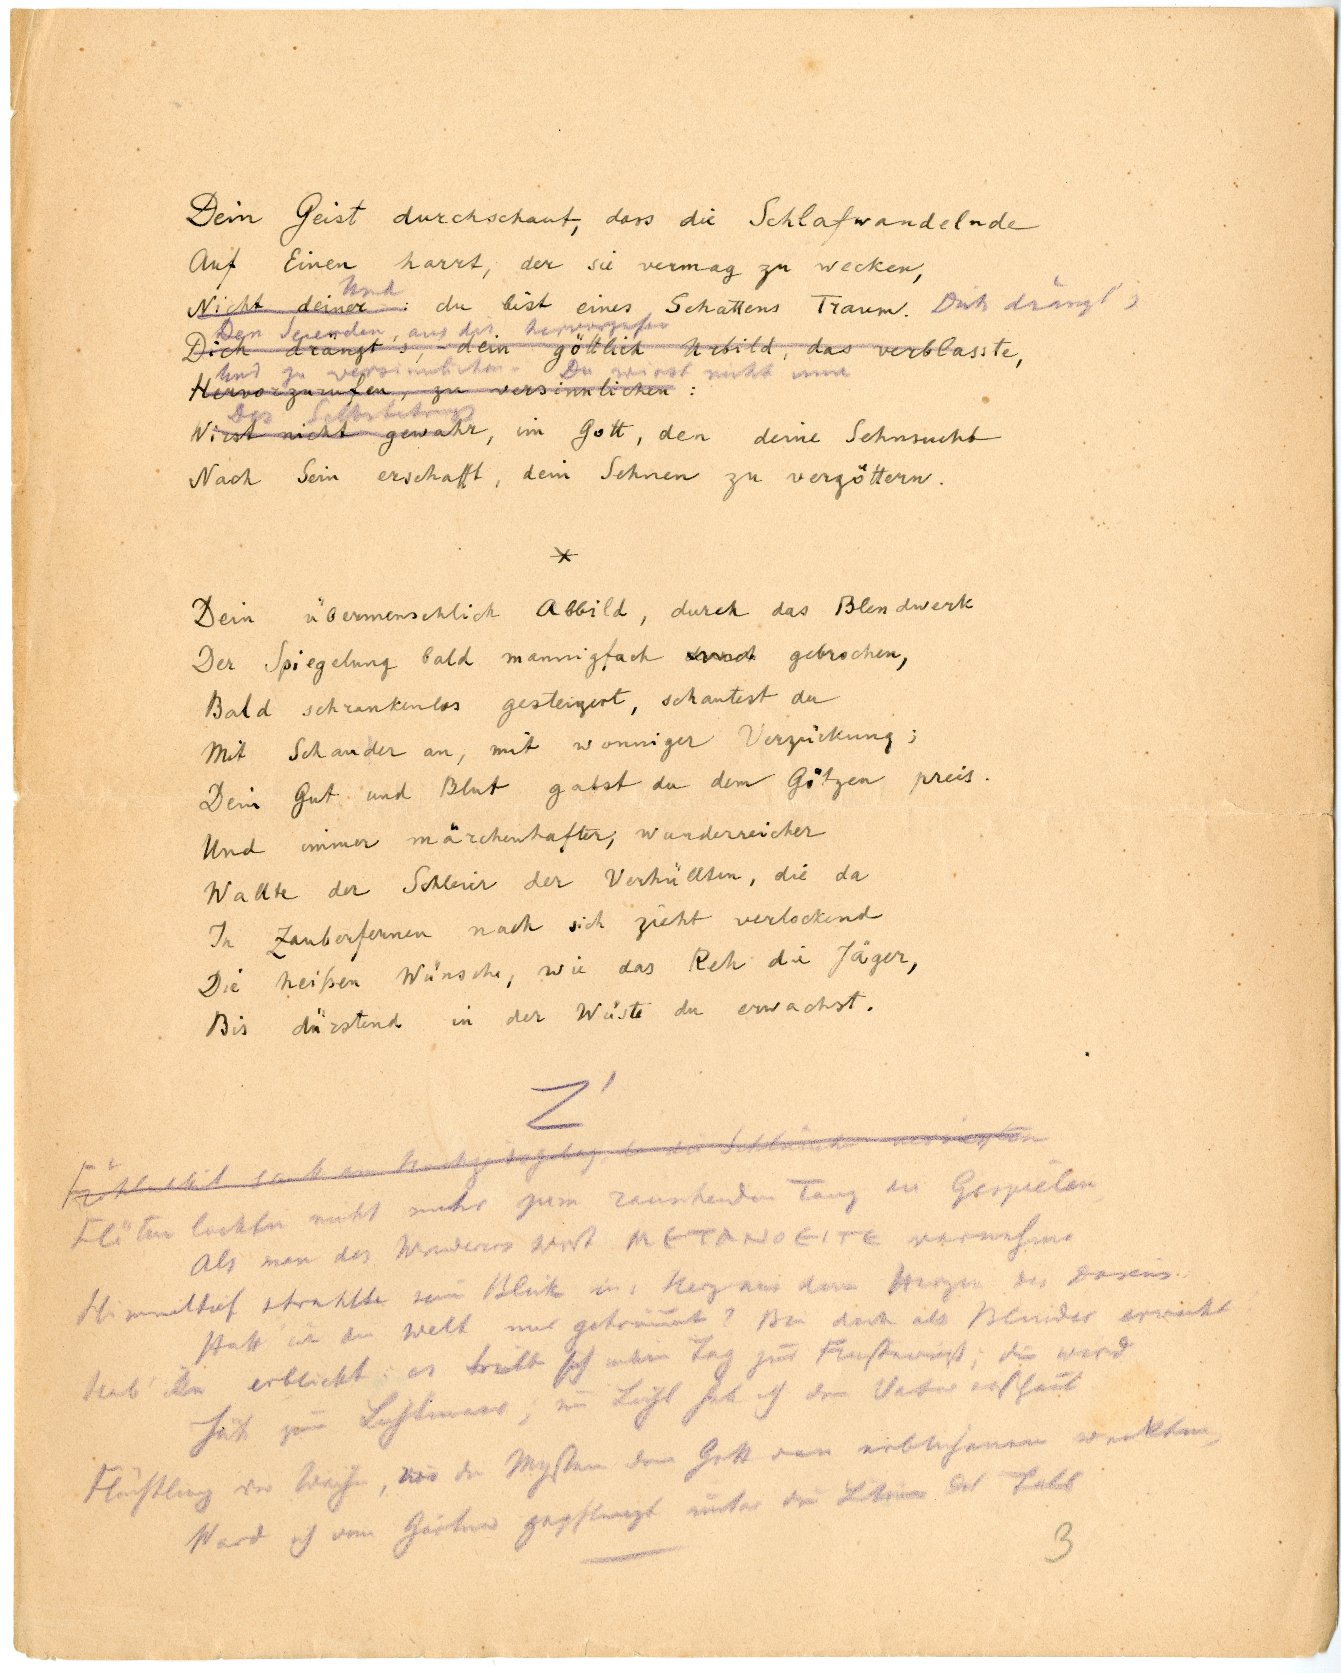 Dein Geist durchschaut, dass die Schlafwandelnde
Auf Einen harrt, der sie vermag zu wecken,
Und
Nicht deiner : du bist eines Schattens Traum. Dich drängt's
Den Seienden, aus dir hervorzurufen
Dich drängt's, dein göttlich Urbild, das verblasste,
Und zu versinnlichen. Du wirst nicht inne
Hervorzurufen, zu versinnlichen :
Des Selbstbetrugs
Wirst nicht gewahr, im Gott, den deine Sehnsucht
Nach Sein erschafft, dein Sehnen zu vergöttern.
*
Dein übermenschlich Abbild, durch das Blendwerk
Der Spiegelung bald mannigfach gebrochen,
Bald schrankenlos gesteigert, schautest du
Mit Schauder an, mit wonniger Verzückung;
Dein Gut und Blut gabst du dem Götzen preis.
Und immer märchenhafter, wunderreicher
Wallte der Schleier der Verhüllten, die da
In Zauberfernen nach sich zieht verlockend
Die heißen Wünsche, wie das Reh die Jäger,
Bis dürstend in der Wüste du erwachst.
Z'
Flöten lockten nicht mehr zum rauschenden Tanz die Gespielen,
Als man des Wanderers Wort METANOEITE vernahm
Himmeltief strahlte sein Blick ins Herz aus dem Herzen des Daseins.
Hatt ich die Welt nur geträumt? Bin doch als Blinder erwacht!
Hab' ihn erblickt; es ; die ward
; im Licht hab ich den Vater erschaut
Flüchtling der Weihe, die Mysten dem Gott weckten,
Ward ich vom Gärtner gepflanzt unter die
3